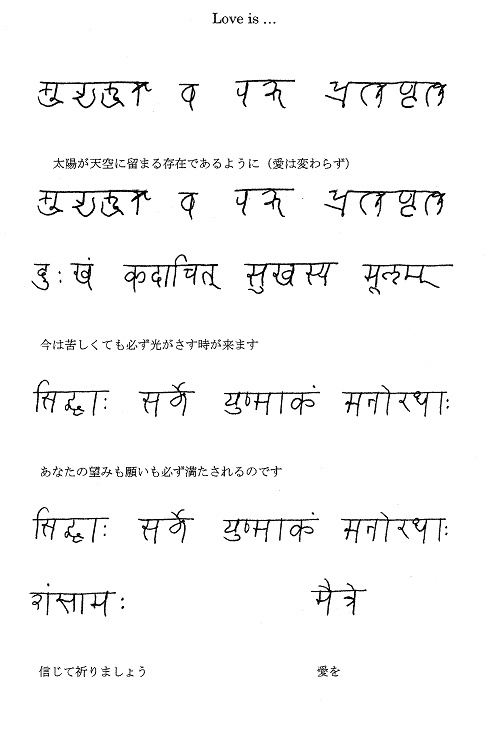 Love is …
太陽が天空に留まる存在であるように（愛は変わらず）
दुःखं कदाचित् सुखस्य मूलम्
今は苦しくても必ず光がさす時が来ます
सिद्धाः सर्वे युष्माकं मनोरथाः
あなたの望みも願いも必ず満たされるのです
सिद्धाः सर्वे युष्माकं मनोरथाः
शंसामः मैत्रे
信じて祈りましょう 愛を